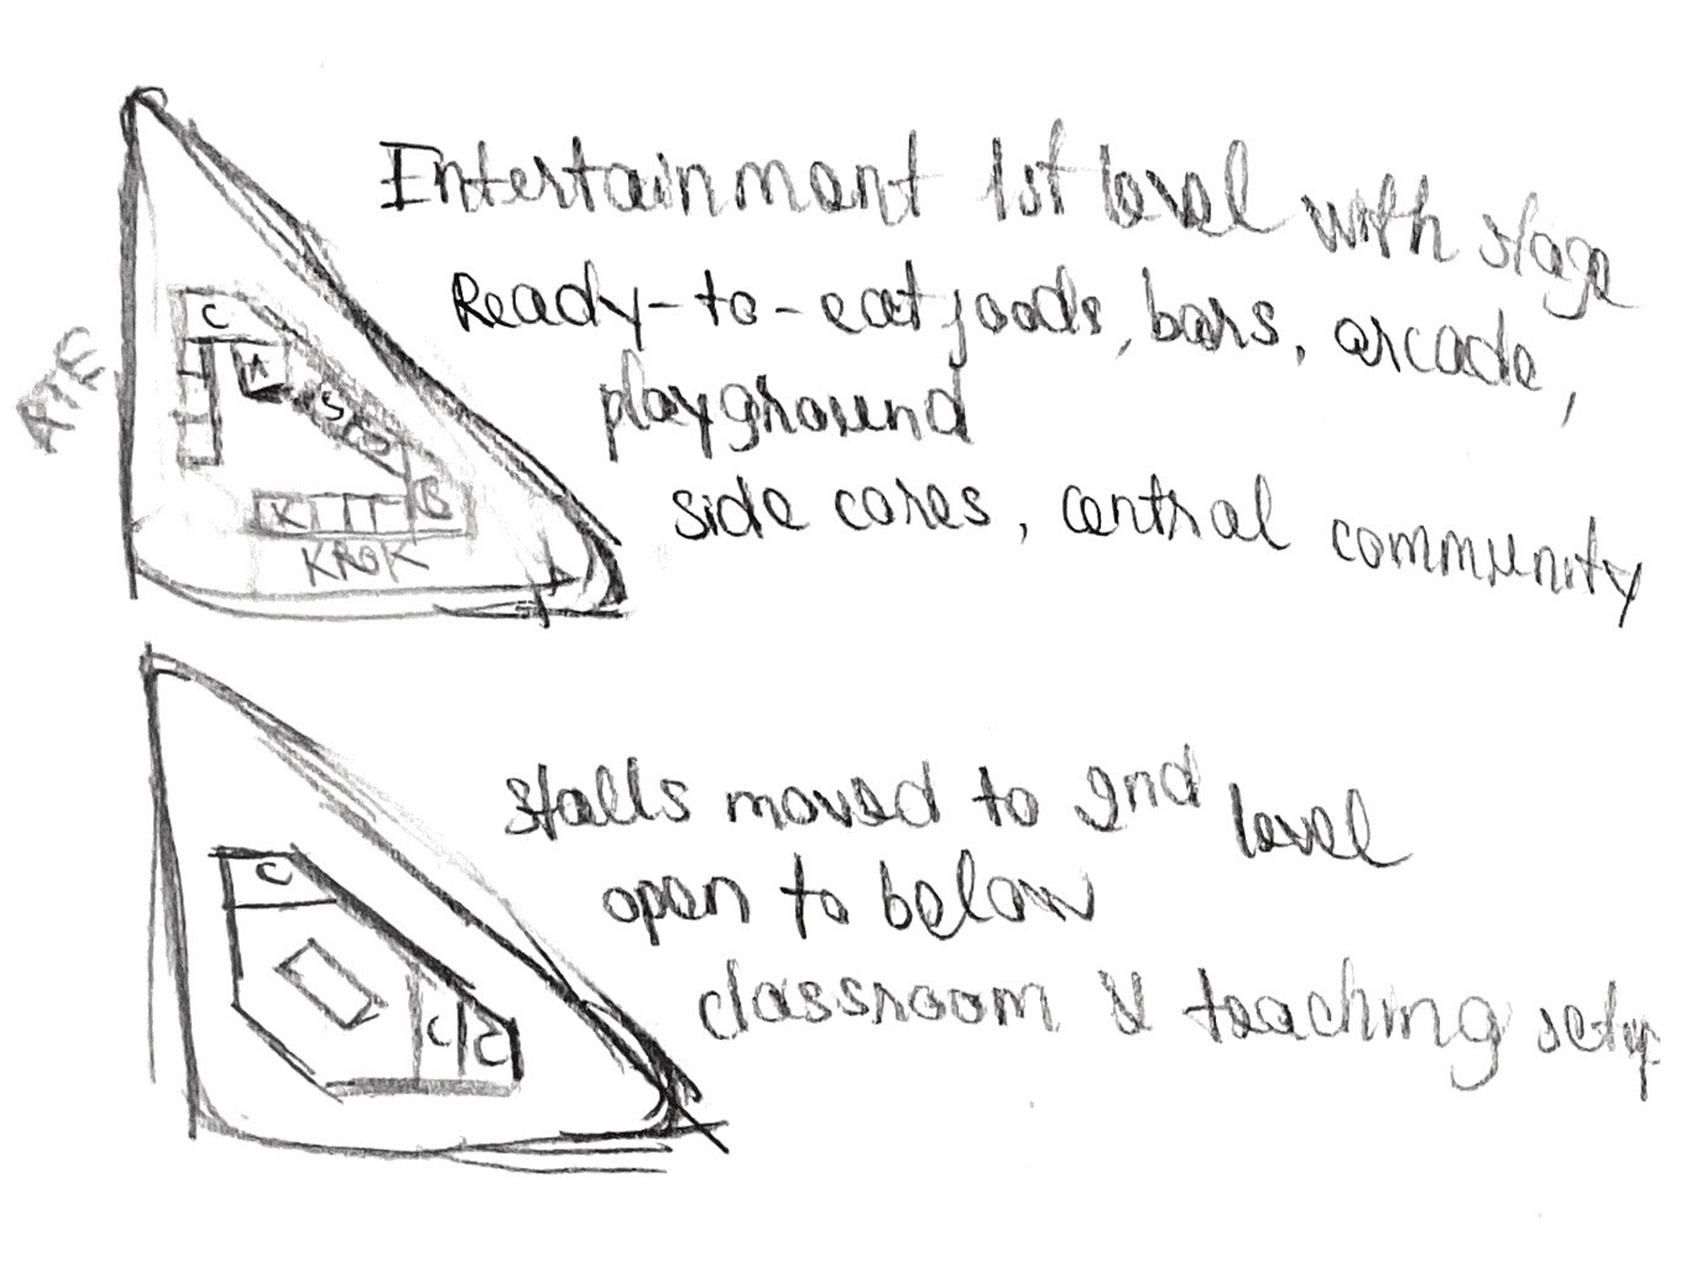 Entertainment 1st level with stage
Ready-to-eat foods, bars, arcade,
playground
side cores, central community
RTE
C
A
S
K
B
KROK
Stalls moved to 2nd level
open to below
classroom & teaching setup
C
C
C